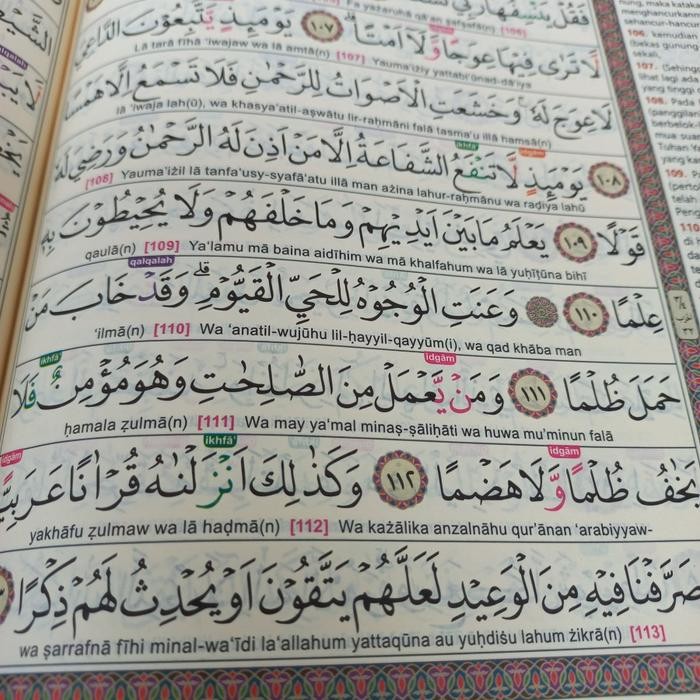 فَقُلْ يَنْسِفُهَا رَبِّيْ
لَا تَرٰى فِيْهَا عِوَجًا وَّلَآ اَمْتًا ۝١٠٧ يَوْمَىِٕذٍ يَّتَّبِعُوْنَ الدَّاعِيَ
Lā tarā fīhā ‘iwajaw wa lā amtā(n) [107] Yauma'iżiy yattabi‘ūnad-dā‘iya
لَا عِوَجَ لَهٗ ۚوَخَشَعَتِ الْاَصْوَاتُ لِلرَّحْمٰنِ فَلَا تَسْمَعُ اِلَّا هَمْسًا
lā ‘iwaja lah(ū), wa khasya‘atil-aṣwātu lir-raḥmāni falā tasma‘u illā hamsā(n)
ikhfā' idgām
۝١٠٨ يَوْمَىِٕذٍ لَّا تَنْفَعُ الشَّفَاعَةُ اِلَّا مَنْ اَذِنَ لَهُ الرَّحْمٰنُ وَرَضِيَ لَهٗ
[108] Yauma'iżil lā tanfa‘usy-syafā‘atu illā man ażina lahur-raḥmānu wa raḍiya lahū
قَوْلًا ۝١٠٩ يَعْلَمُ مَا بَيْنَ اَيْدِيْهِمْ وَمَا خَلْفَهُمْ وَلَا يُحِيْطُوْنَ بِهٖ
qaulā(n) [109] Ya‘lamu mā baina aidīhim wa mā khalfahum wa lā yuḥīṭūna bihī
qalqalah
عِلْمًا ۝١١٠ وَعَنَتِ الْوُجُوْهُ لِلْحَيِّ الْقَيُّوْمِۗ وَقَدْ خَابَ مَنْ
‘ilmā(n) [110] Wa ‘anatil-wujūhu lil-ḥayyil-qayyūm(i), wa qad khāba man
idgām ikhfā'
حَمَلَ ظُلْمًا ۝١١١ وَمَنْ يَّعْمَلْ مِنَ الصّٰلِحٰتِ وَهُوَ مُؤْمِنٌ فَلَا
ḥamala ẓulmā(n) [111] Wa may ya‘mal minaṣ-ṣāliḥāti wa huwa mu'minun falā
idgām ikhfā' idgām
يَخٰفُ ظُلْمًا وَّلَا هَضْمًا ۝١١٢ وَكَذٰلِكَ اَنْزَلْنٰهُ قُرْاٰنًا عَرَبِيًّا
yakhāfu ẓulmaw wa lā haḍmā(n) [112] Wa każālika anzalnāhu qur'ānan ‘arabiyyaw-
صَرَّفْنَا فِيْهِ مِنَ الْوَعِيْدِ لَعَلَّهُمْ يَتَّقُوْنَ اَوْ يُحْدِثُ لَهُمْ ذِكْرًا
wa ṣarrafnā fīhi minal-wa‘īdi la‘allahum yattaqūna au yuḥdiṡu lahum żikrā(n) [113]